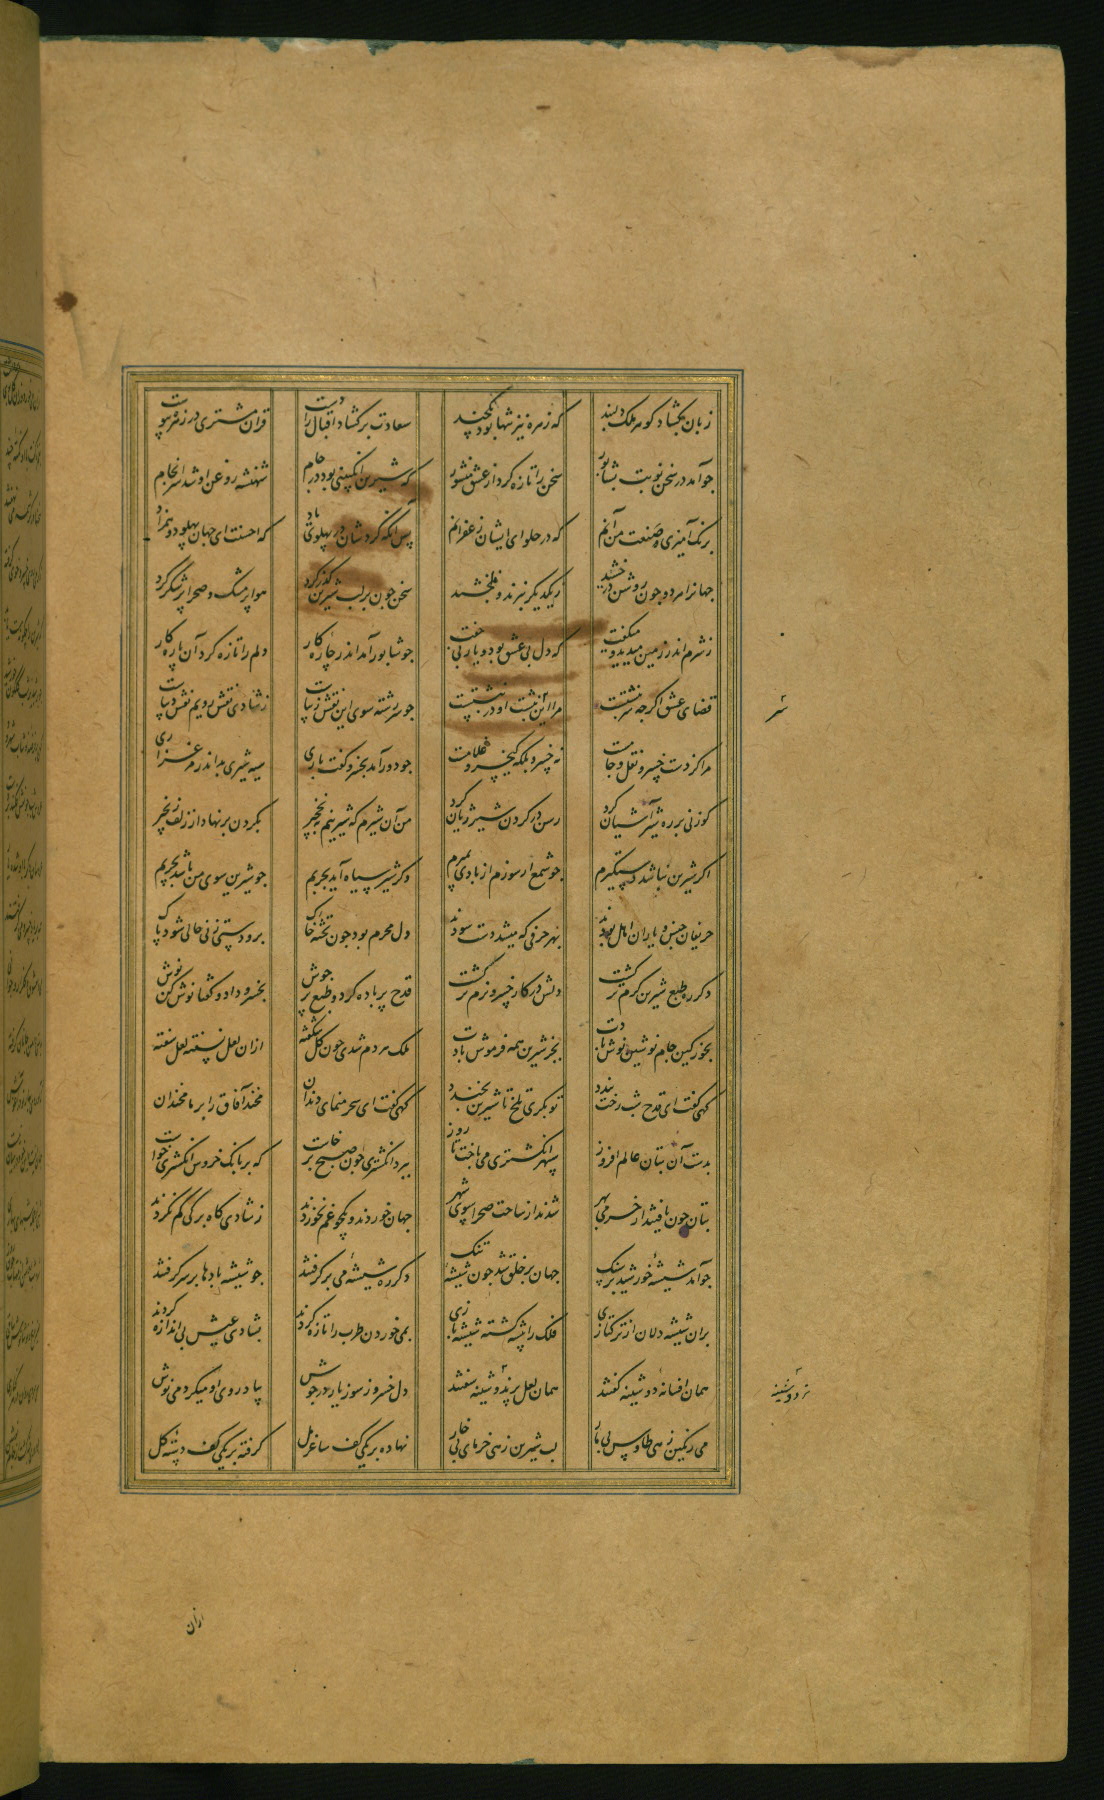 زبان بگشاد گوهر ملک دلبند که زهره نیز تنها بود یکچند سعادت برگشاد اقبال را دست قران مشتری در زهره پیوست
جو آمد در سخن نوبت بشابور سخن را تازه کرد از عشق منشور که شیرین انگبینی بود در جام شهنشه روغن او شد سرانجام
برنگ آمیزی صنعت من آنم که در حلوای ایشان زعفرانم پس آنگه کردشان در پهلوی یاد که احسنت ای جهان پهلو دو همزاد
جهانرا هر دو جون روشن درخشید زیکدیگر نبرند و نبخشید سخن جون بر لب شیرین گذر کرد هوا پر مشک و صحرا پر شکر کرد
ز شرم اندر زمین میدید و میگفت که دل بی عشق بود و یار بی جفت جو شابور آمد اندر جاره کار دلم را تازه کرد آن باره کار
قضای عشق اگرجه سرنبشتست مرا این نبشت او در نبشتست جو سررشته سوی این نقش زیباست ز شادی نقش رویم نقش دیباست
مرا کز دست خسرو نقل و جامست نه خسرو بلکه کیخسرو غلامست جو دور آمد بخسرو گفت باری سیه شیری بد اندر مرغزاری
گوزنی بر ره شیر آشیان کرد رسن در گردن شیر ژیان کرد من آن شیرم که شیرینم بنخجیر بگردن بر نهاد از زلف زنجیر
اگر شیرین نباشد دستگیرم جو شمع ار سوزم از بادی بمیرم وگر شیر سیاه آید بحربم جو شیرین سوی من باشد بجربم
حریفان جنس و یاران اهل بودند بهر حرفی که میشد دست سودند دل محرم بود جون تخته خاک برو دستی زنی حالی شود پاک
دگر ره طبع شیرین گرم تر گشت دلش در کار خسرو نرم تر گشت قدح پر باده کرد و طبع پر جوش بخسرو داد و گفتا نوش کن نوش
بخور کین جام نوشین نوش بادت بجز شیرین همه فرموش بادت ملک هر دم شدی جون گل شکفته ازان لعل نسفته لعل سفته
گهی گفت ای قدح شب رخت بندد تو بگری تلخ تا شیرین بخندد گهی گفت ای سحر منمای دندان مخند آفاق را بر ما مخندان
بدست آن بتان عالم افروز سپهر انگشتری می باخت تا روز ببرد انگشتری جون صبح برخاست که بر بانک خروس انگشتری خواست
بتان جون یافتند از خرمی بهر شدند از ساحت صحرا سوی شهر جهان خوردند و یکجو غم نخوردند ز شادی کاه برگی کم نکردند
جو آمد شیشه خورشید بر سنک جهان بر خلق شد جون شیشه تنک دگر ره شیشه می بر گرفتند جو شیشه بادها بر سر گرفتند
بران شیشه دلان از ترکتازی فلک را پیشه گشته شیشه بازی بمی خوردن طرب را تازه کردند بشادی عیش بی اندازه کردند
همان افسانه دوشینه گفتند همان لعل پرندوشینه سفتند دل خسرو ز سوز یار در جوش بیاد روی او میکرد می نوش
می رنگین زهی طاوس بی مار لب شیرین زهی خرمای بی خار نهاده بر یکی کف ساغر مل گرفته بر یکی کف دسته گل
ازان